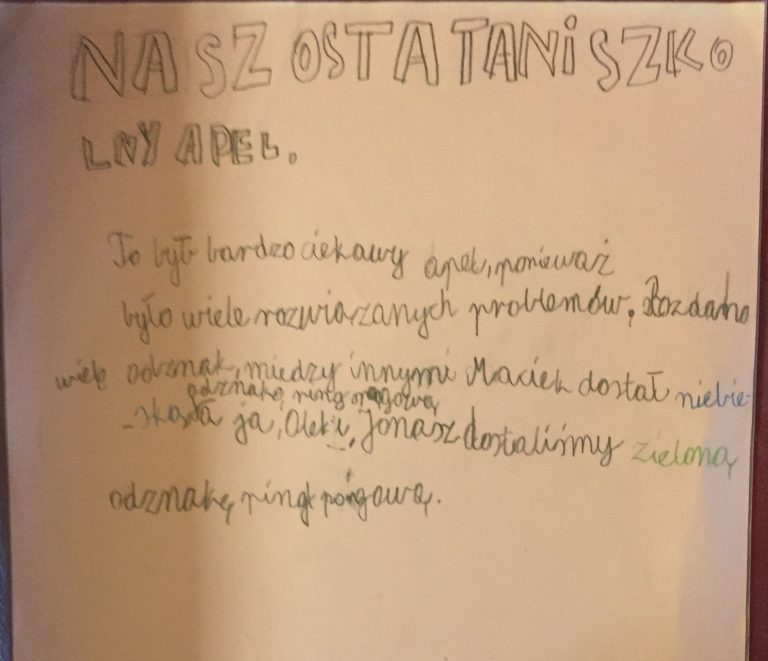 NASZ OSTATANI SZKO
LNY APEL.
To był bardzo ciekawy apel, ponieważ
było wiele rozwiązanych problemów. Rozdano
wiele odznak, między innymi Maciek dostał niebie-
odznakę ring
-ską a ja, Olek i, Jonasz dostaliśmy zieloną
odznakę, ringkpongową.